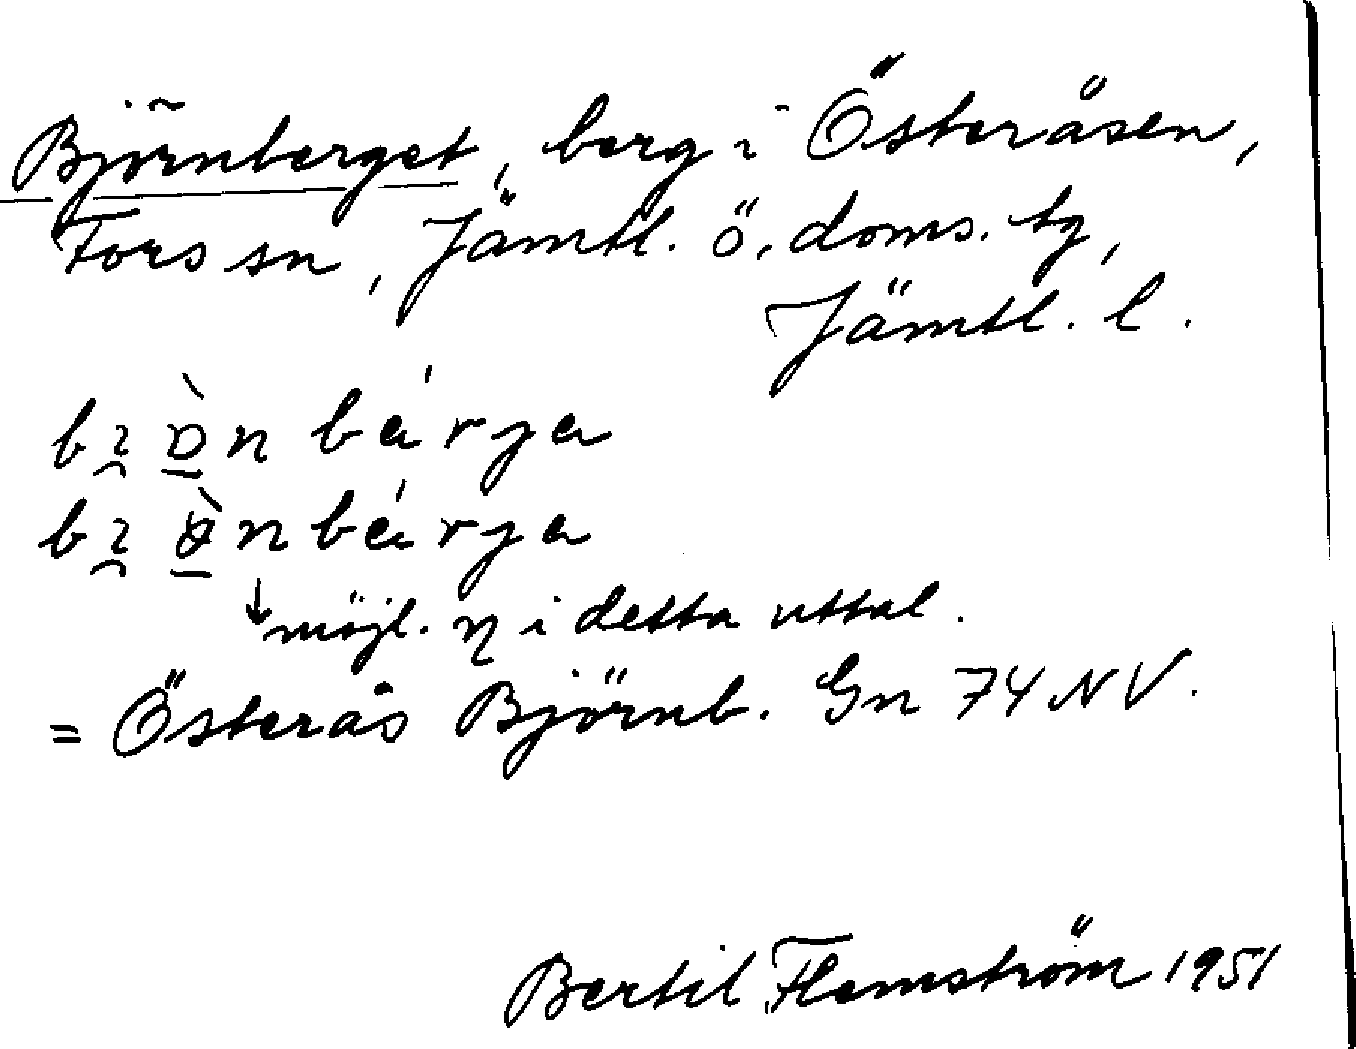 Björnberget, berg i Österåsen,
Fors sn, Jämtl. ö. doms. tg,
Jämtl. l.
= Österås Björnb. Gn 74 NV.
möjl. η i detta uttal.
Bertil Flemström 1951